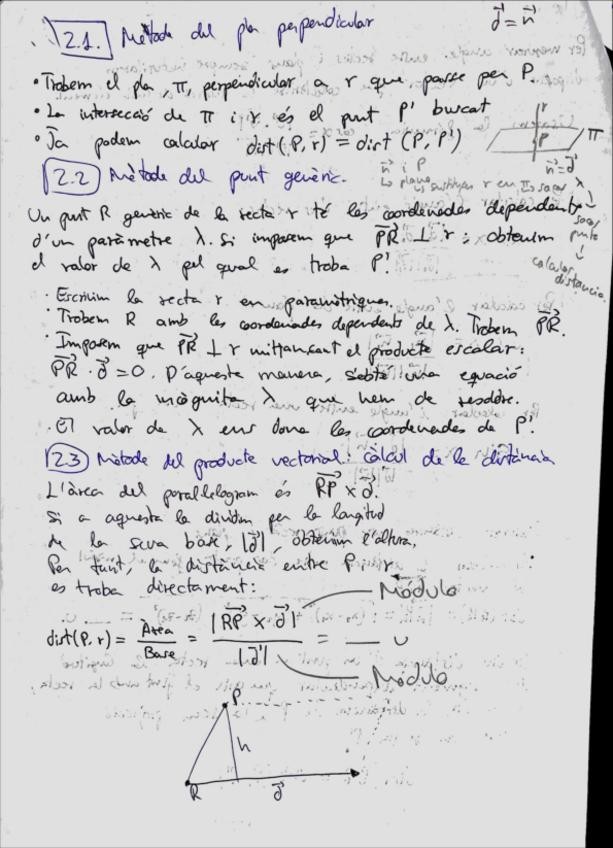 2.1. Mètode del pla perpendicular
d⃗ = n⃗
· Trobem el pla, π, perpendicular a r que passe per P.
· La intersecció de π i r és el punt P' buscat
· Ja podem calcular dist(P, r) = dist (P, P')
r
P
π
n⃗ = d⃗
n⃗ i P
↳ plano
2.2 Mètode del punt genèric.
Un punt R genèric de la recta r té les coordenades dependents
d'un paràmetre λ. Si imposem que PR⃗ ⊥ r, obtenim
el valor de λ pel qual es troba P'.
λ
↳ sacas
punto
↓
calculas
distancia.
· Escrivim la recta r en paramètriques.
· Trobem R amb les coordenades dependents de λ. Trobem PR⃗.
· Imposem que PR⃗ ⊥ r mitjançant el producte escalar:
PR⃗ · d⃗ = 0. D'aquesta manera, s'obté una equació
amb la incògnita λ que hem de resoldre.
· El valor de λ ens dona les coordenades de P'.
2.3 Mètode del producte vectorial: càlcul de la distància
L'àrea del paral·lelogram és RP⃗ x d⃗.
Si a aquesta la dividim per la longitud
de la seva base, |d⃗|, obtenim l'altura.
Per tant, la distància entre P i r
es troba directament:
Módulo
dist(P, r) = Àrea / Base = |RP⃗ x d⃗| / |d⃗| = __ u
Módulo
P
h
R
d⃗